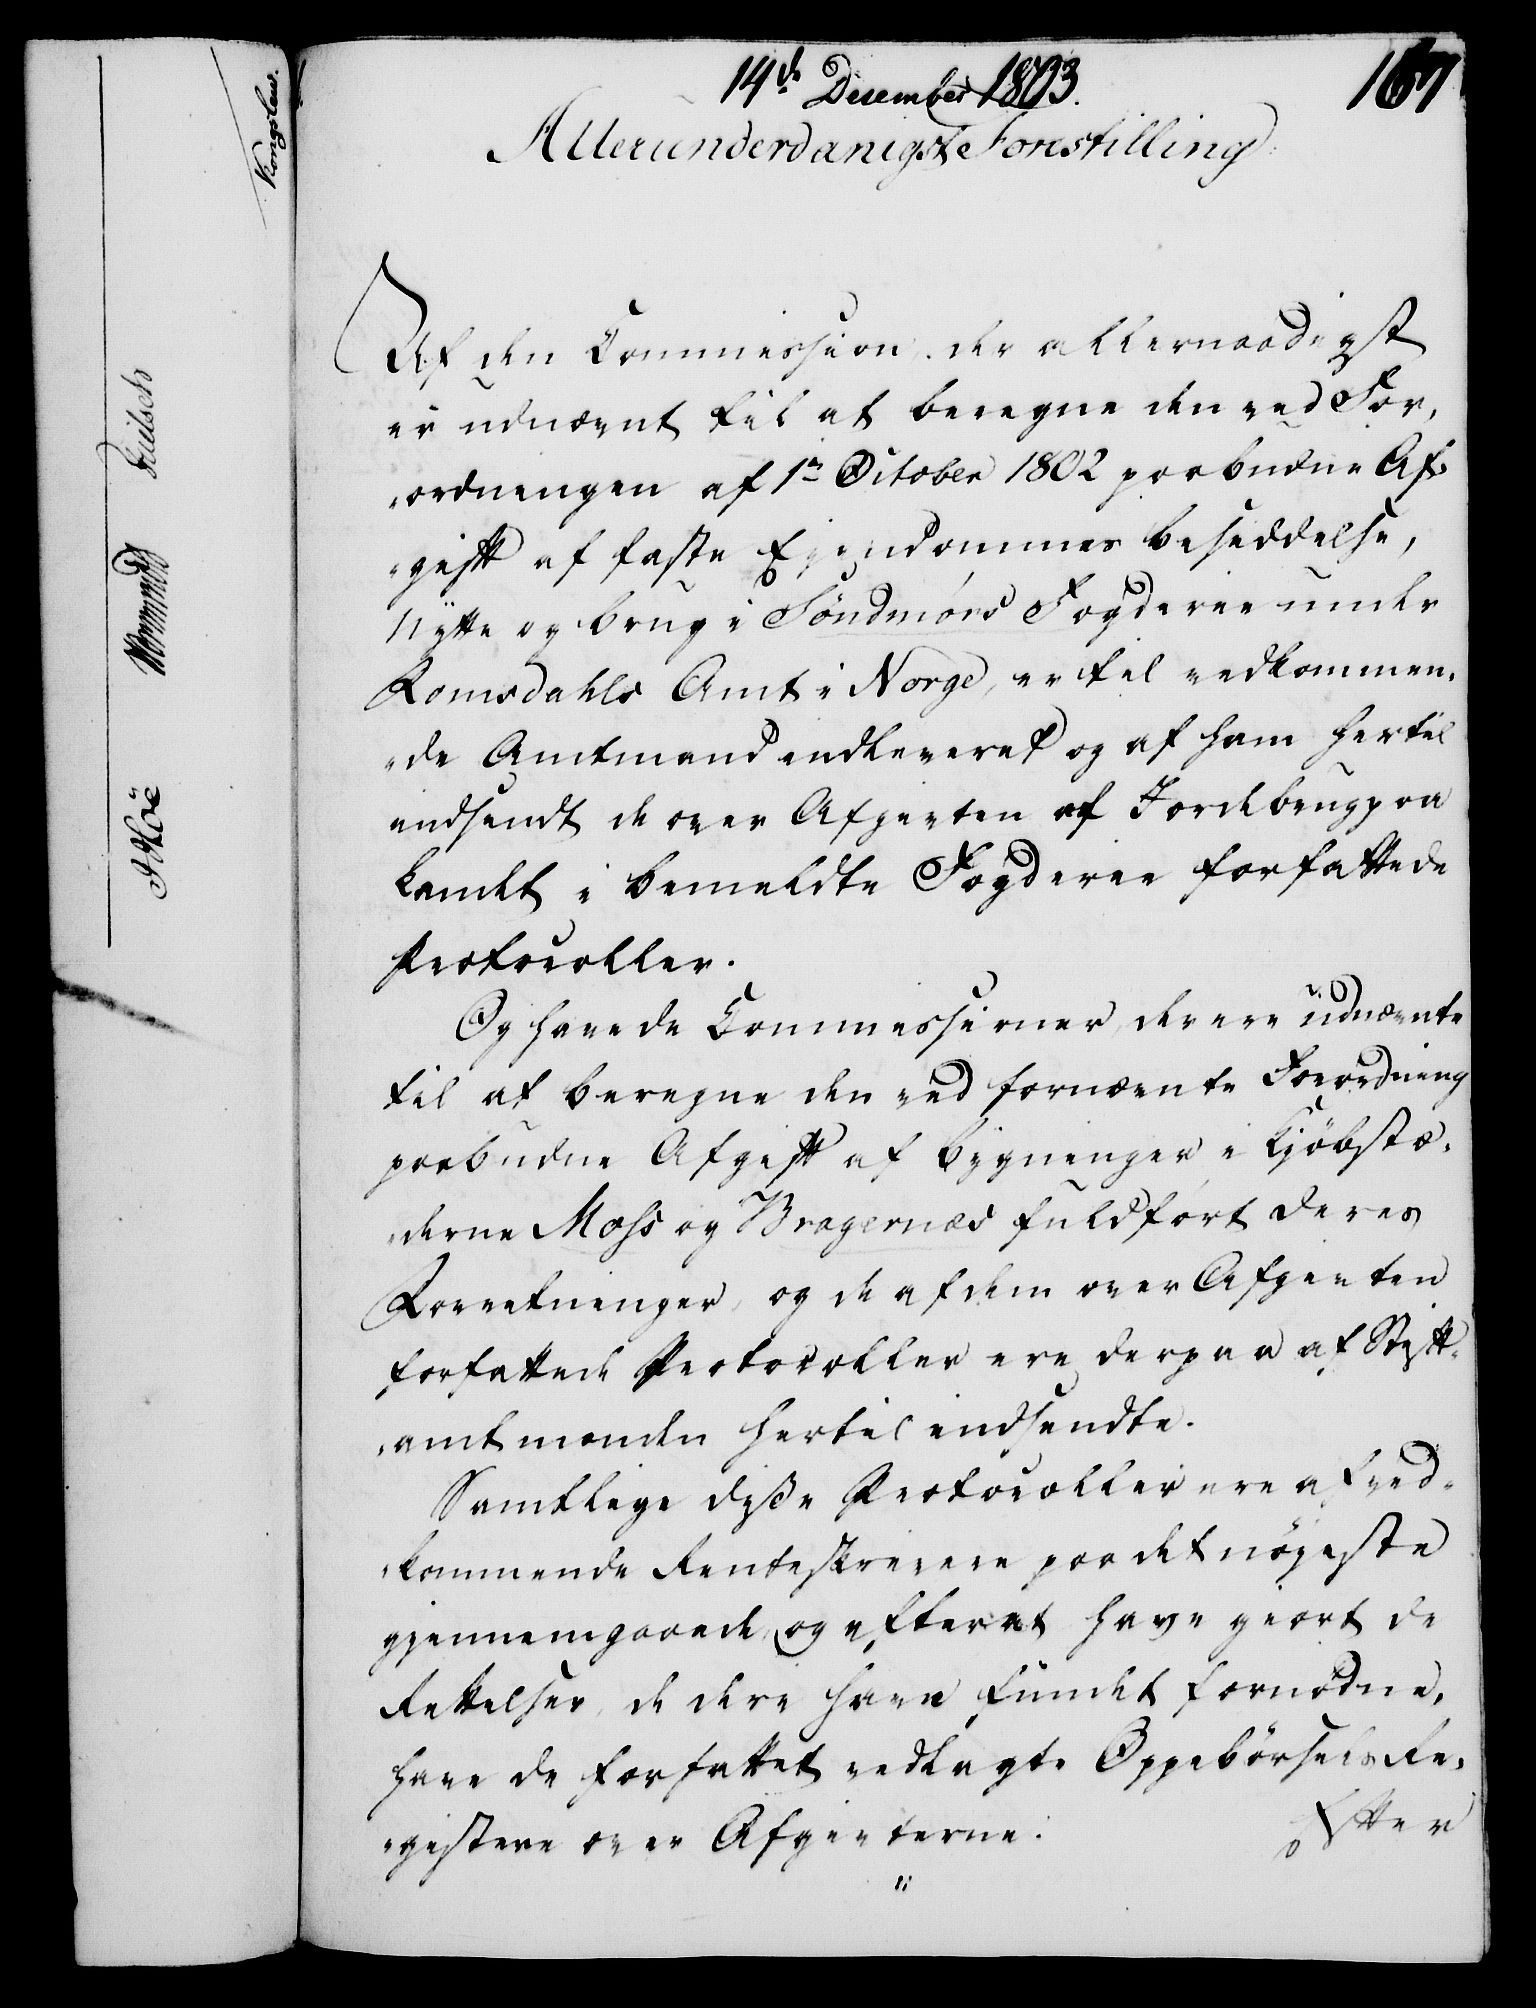 14de December 1803.
167
Allerunderdanigst Forestilling
Af den Commission, der allernaadigst
er udnævnt til at beregne den ved For-
"ordningen af 1te October 1802 paabudne Af-
"gift af faste Ejendommes besiddelse,
Nytte og brug i Söndmörs Fogderie under
Romsdahls Amt i Norge, er til vedkommen-
"de Amtmand indleveret og af ham hertil
indsendt de over Afgivten af Jordebrug paa
Landet i bemeldte Fogderie forfattede
Protocoller.
Og have de Commissioner, der ere udnævnte
til at beregne den ved fornævnte Forordning
paabudne Afgift af bygninger i Kjöbstæ-
"derne Moss og Bragernæs fuldfört deres
Forretninger, og de af dem over Afgivten
forfattede Protocoller ere derpaa af Stift-
"amtmanden hertil indsendte.
Samtlige disse Protocoller ere af ved-
"kommende Renteskrivere paa det nöjeste
gjennemgaaede, og efterat have giort de
Rettelser, de deri have fundet fornödne,
have de forfattet vedlagte Oppebörsels Re-
"gistere over Afgivterne.
Efter
Kongslew.